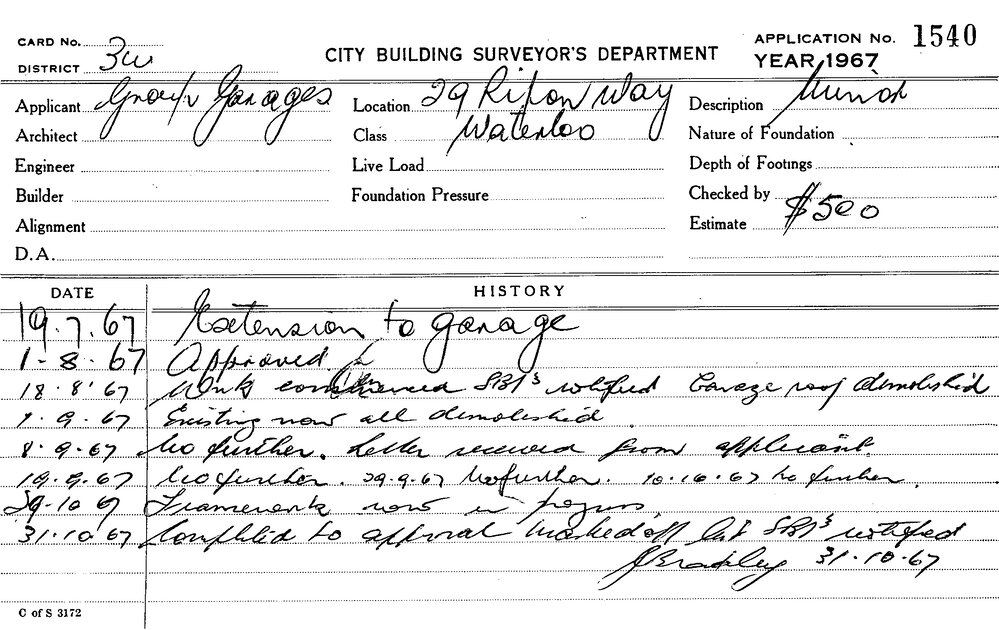 CARD No. 3w
DISTRICT
CITY BUILDING SURVEYOR'S DEPARTMENT
APPLICATION No. 1540
YEAR 1967
Applicant Group Garages
Location 29 Ripon Way
Description Minor
Architect
Class Waterloo
Nature of Foundation
Engineer
Live Load
Depth of Footings
Builder
Foundation Pressure
Checked by
Alignment
Estimate $500
D.A.
DATE HISTORY
19.7.67 Extension to garage
1-8-67 Approved
18.8.67 Work commenced SBI's notified Garage roof demolished
1.9.67 Existing now all demolished
8.9.67 No further. Letter received from applicant.
19.9.67 No further. 29.9.67 No further. 10.10.67 No further.
29-10 67 Framework now in progress
31.10 67 Completed to approval marked off list SBI's notified
31.10.67
C of S 3172